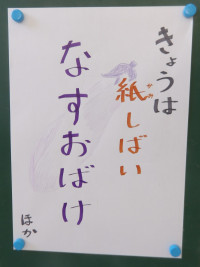 きょうは
紙しばい
かみ
なすおばけ
ほか